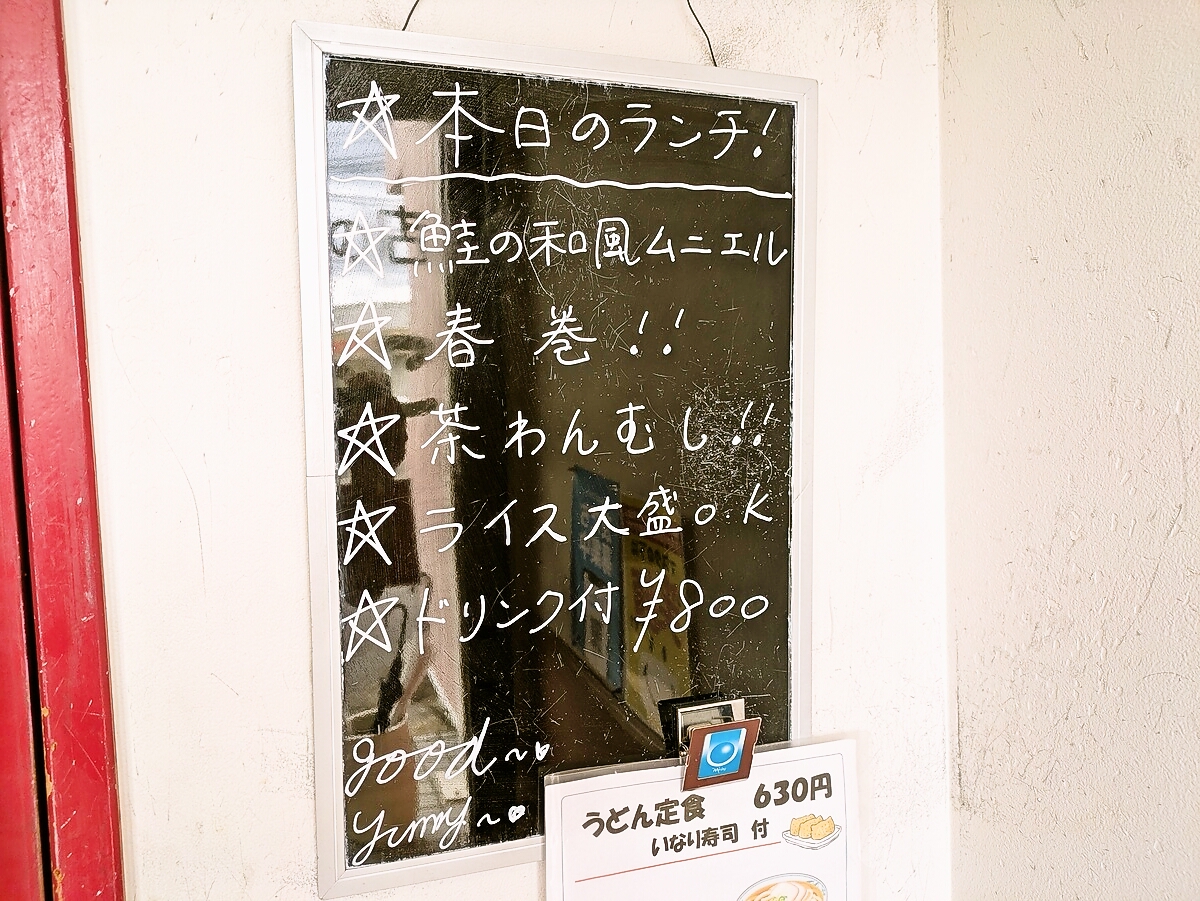 ☆本日のランチ!
☆鮭の和風ムニエル
☆春巻!!
☆茶わんむし!!
☆ライス大盛o.k
☆ドリンク付¥800
good~
yummy~
うどん定食 630円
いなり寿司 付